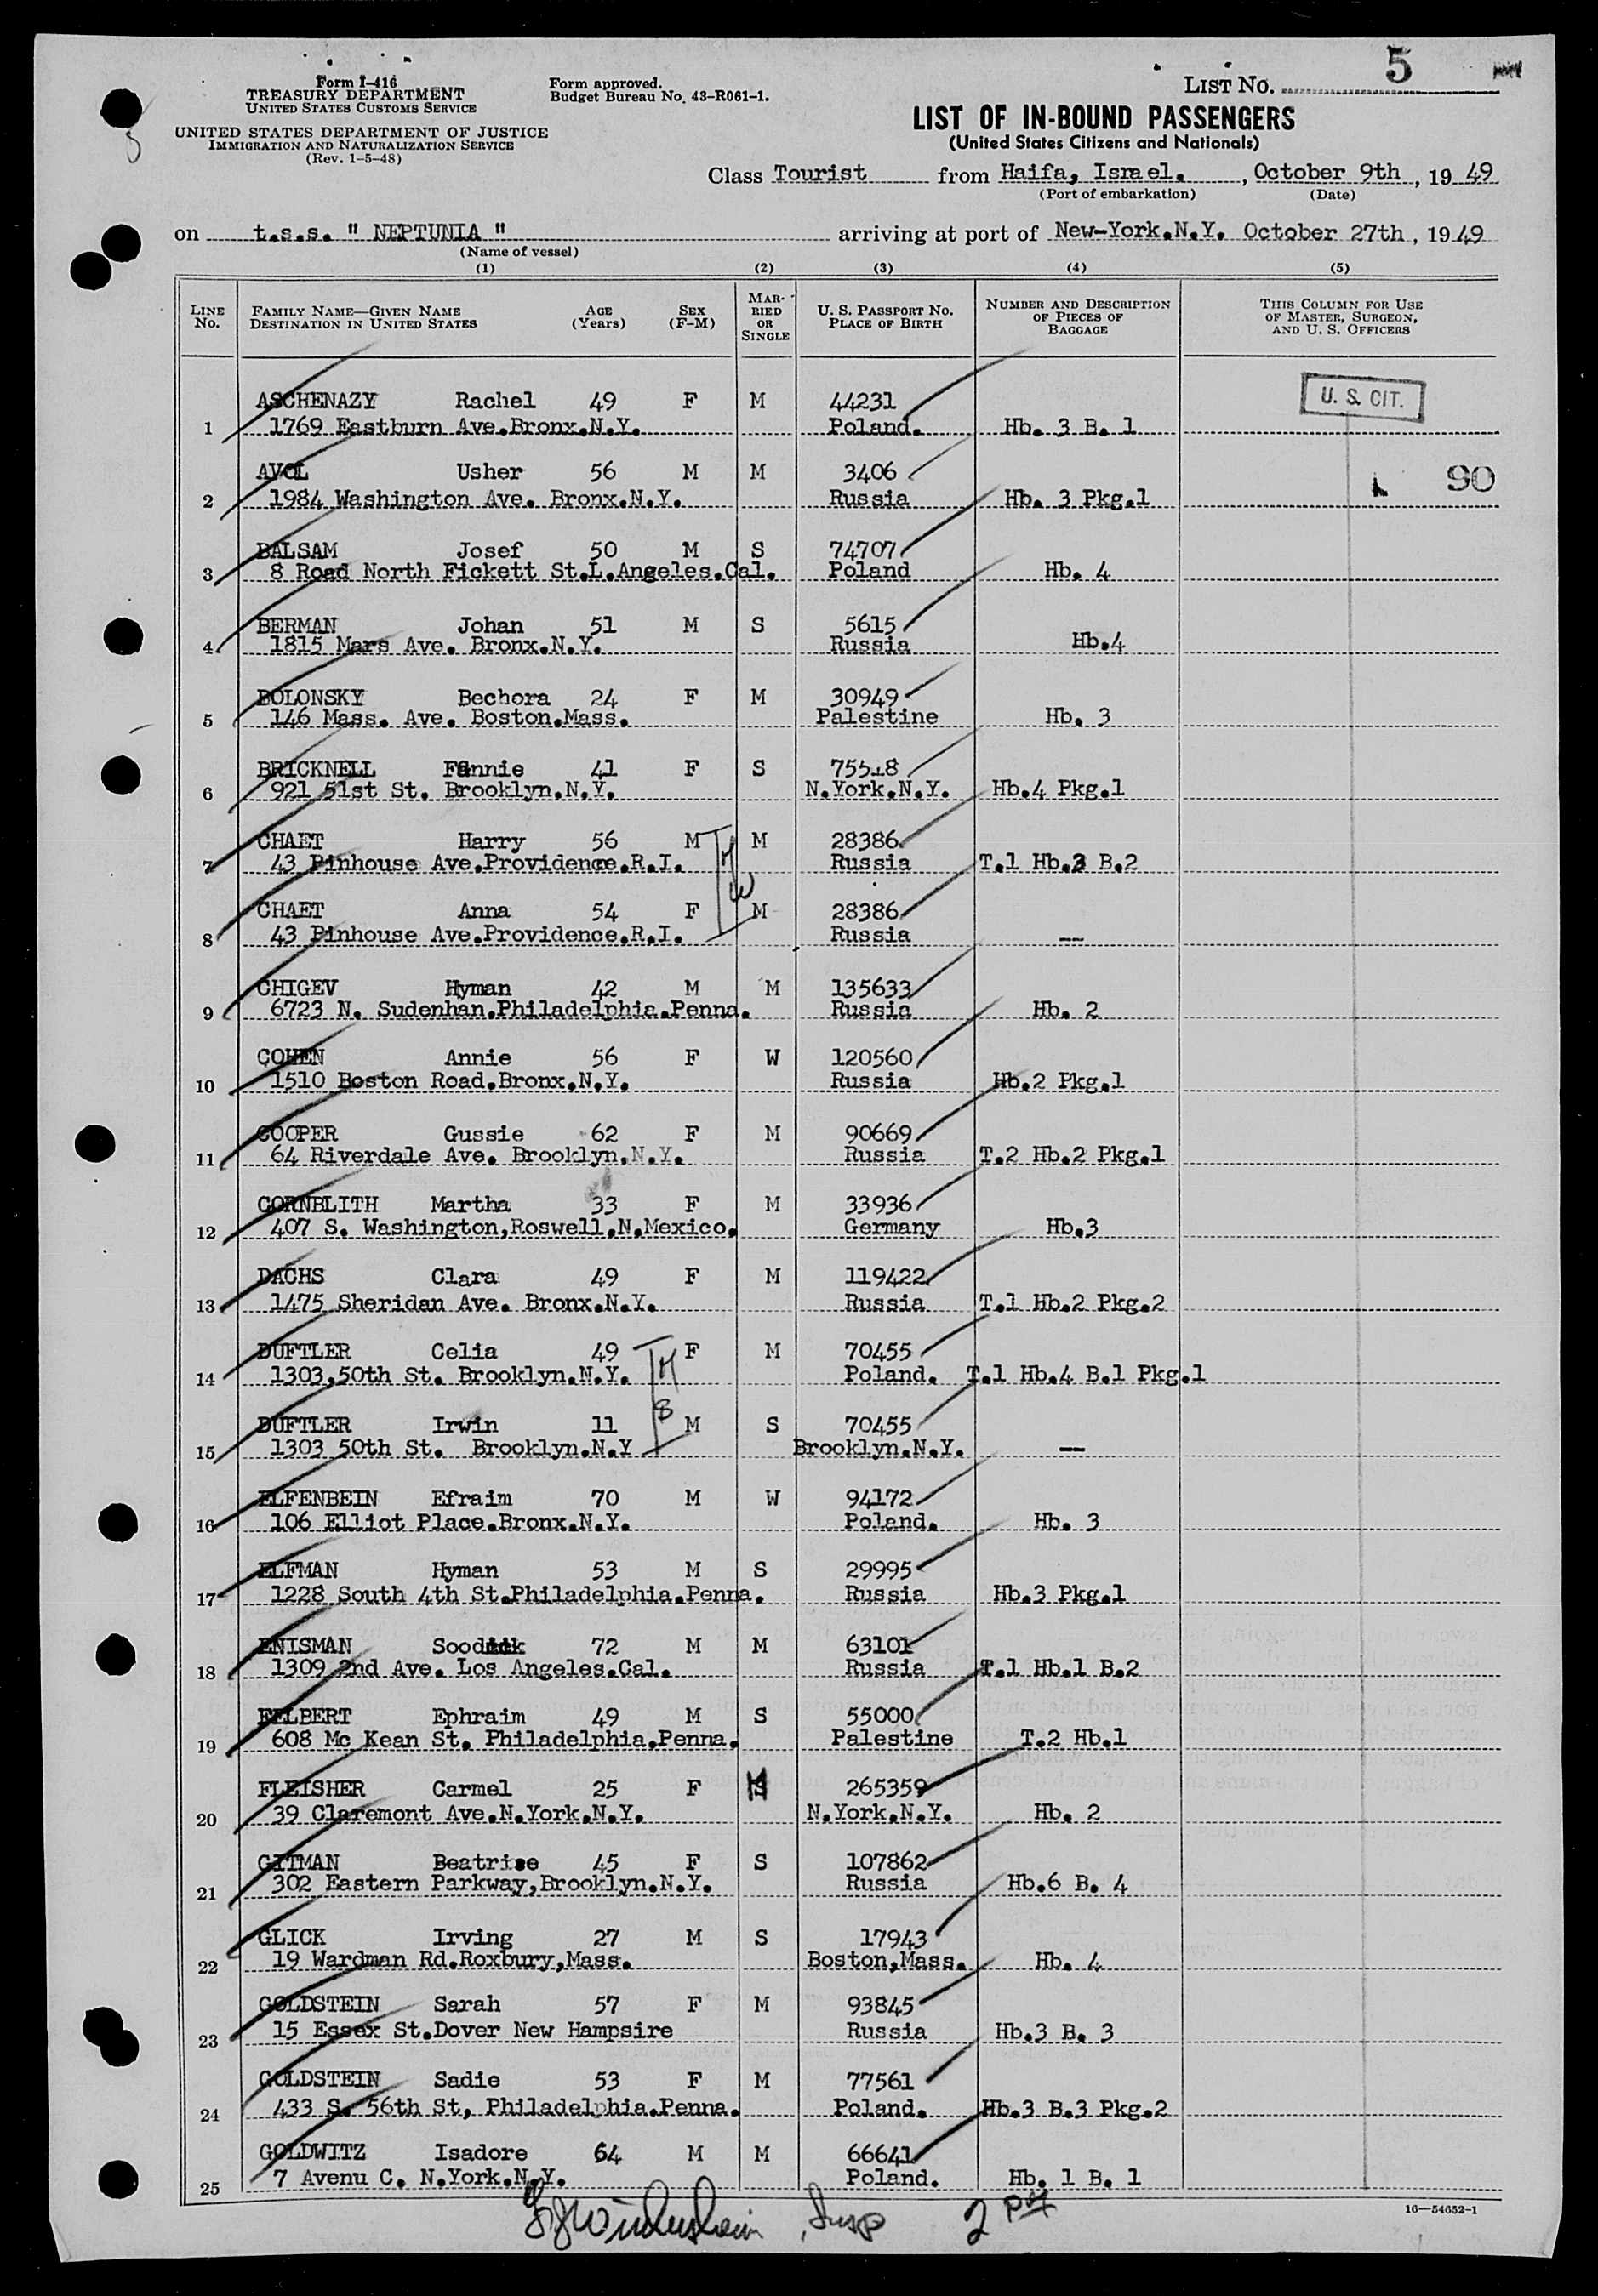 Form I-416
TREASURY DEPARTMENT
UNITED STATES CUSTOMS SERVICE
UNITED STATES DEPARTMENT OF JUSTICE
IMMIGRATION AND NATURALIZATION SERVICE
(Rev. 1-5-48)
Form approved.
Budget Bureau No. 43-R061-1.
LIST NO. 5
LIST OF IN-BOUND PASSENGERS
(United States Citizens and Nationals)
Class Tourist from Haifa, Israel. , October 9th , 19 49
(Port of embarkation) (Date)
on t.s.s. " NEPTUNIA " arriving at port of New-York.N.Y. October 27th , 1949
(Name of vessel)
(1) (2) (3) (4) (5)
LINE NO. FAMILY NAME—GIVEN NAME DESTINATION IN UNITED STATES AGE (Years) SEX (F-M) MARRIED OR SINGLE U. S. PASSPORT NO. PLACE OF BIRTH NUMBER AND DESCRIPTION OF PIECES OF BAGGAGE THIS COLUMN FOR USE OF MASTER, SURGEON, AND U. S. OFFICERS
ASCHENAZY Rachel 49 F M 44231 U. S. CIT.
1 1769 Eastburn Ave.Bronx.N.Y. Poland. Hb. 3 B. 1
AVOL Usher 56 M M 3406 90
2 1984 Washington Ave. Bronx.N.Y. Russia Hb. 3 Pkg.1
BALSAM Josef 50 M S 74707
3 8 Road North Fickett St.L.Angeles.Cal. Poland Hb. 4
BERMAN Johan 51 M S 5615
4 1815 Mars Ave. Bronx.N.Y. Russia Hb.4
BOLONSKY Bechora 24 F M 30949
5 146 Mass. Ave. Boston.Mass. Palestine Hb. 3
BRICKNELL Fannie 41 F S
6 921 51st St. Brooklyn.N.Y. N.York.N.Y. Hb.4 Pkg.1
CHAET Harry 56 M M 28386
7 43 Pinhouse Ave.Providence.R.I. Russia T.1 Hb.3 B.2
CHAET Anna 54 F M 28386
8 43 Pinhouse Ave.Providence.R.I. Russia --
CHIGEV Hyman 42 M M 135633
9 6723 N. Sudenhan.Philadelphia.Penna. Russia Hb. 2
COHEN Annie 56 F W 120560
10 1510 Boston Road.Bronx.N.Y. Russia Hb.2 Pkg.1
COOPER Gussie 62 F M 90669
11 64 Riverdale Ave. Brooklyn.N.Y. Russia T.2 Hb.2 Pkg.1
CORNBLITH Martha 33 F M 33936
12 407 S. Washington,Roswell.N.Mexico. Germany Hb.3
DACHS Clara 49 F M 119422
13 1475 Sheridan Ave. Bronx.N.Y. Russia T.1 Hb.2 Pkg.2
DUFTLER Celia 49 F M 70455
14 1303,50th St. Brooklyn.N.Y. Poland. T.1 Hb.4 B.1 Pkg.1
DUFTLER Irwin 11 M S 70455
15 1303 50th St. Brooklyn.N.Y Brooklyn.N.Y. --
ELFENBEIN Efraim 70 M W 94172
16 106 Elliot Place.Bronx.N.Y. Poland. Hb. 3
ELFMAN Hyman 53 M S 29995
17 1228 South 4th St.Philadelphia.Penna. Russia Hb.3 Pkg.1
ENISMAN 72 M M 63101
18 1309 2nd Ave. Los Angeles.Cal. Russia T.1 Hb.1 B.2
FELBERT Ephraim 49 M S 55000
19 608 Mc Kean St. Philadelphia.Penna. Palestine T.2 Hb.1
FLEISHER Carmel 25 F M 265359
20 39 Claremont Ave.N.York.N.Y. N.York.N.Y. Hb. 2
GITMAN Beatrise 45 F S 107862
21 302 Eastern Parkway,Brooklyn.N.Y. Russia Hb.6 B. 4
GLICK Irving 27 M S 17943
22 19 Wardman Rd.Roxbury,Mass. Boston,Mass. Hb. 4
GOLDSTEIN Sarah 57 F M 93845
23 15 Essex St.Dover New Hampsire Russia Hb.3 B. 3
GOLDSTEIN Sadie 53 F M 77561
24 433 S. 56th St, Philadelphia.Penna. Poland. Hb.3 B.3 Pkg.2
GOLDWITZ Isadore 64 M M 66641
25 7 Avenu C. N.York.N.Y. Poland. Hb. 1 B. 1
16—54652-1